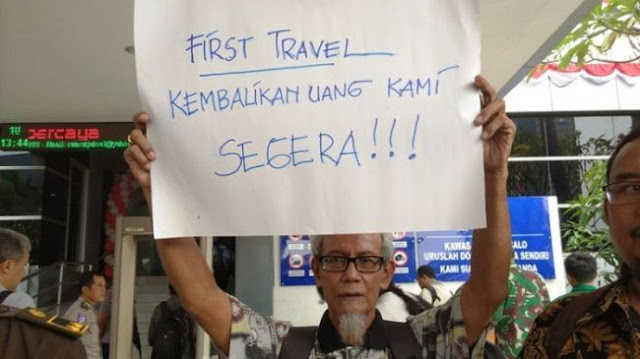 FIRST TRAVEL
KEMBALIKAN UANG KAMI
SEGERA!!!
percaya
13:44
KAWAS
CALO
URUSLAH DO
A SENDIRI
KAMI SI
ANDA